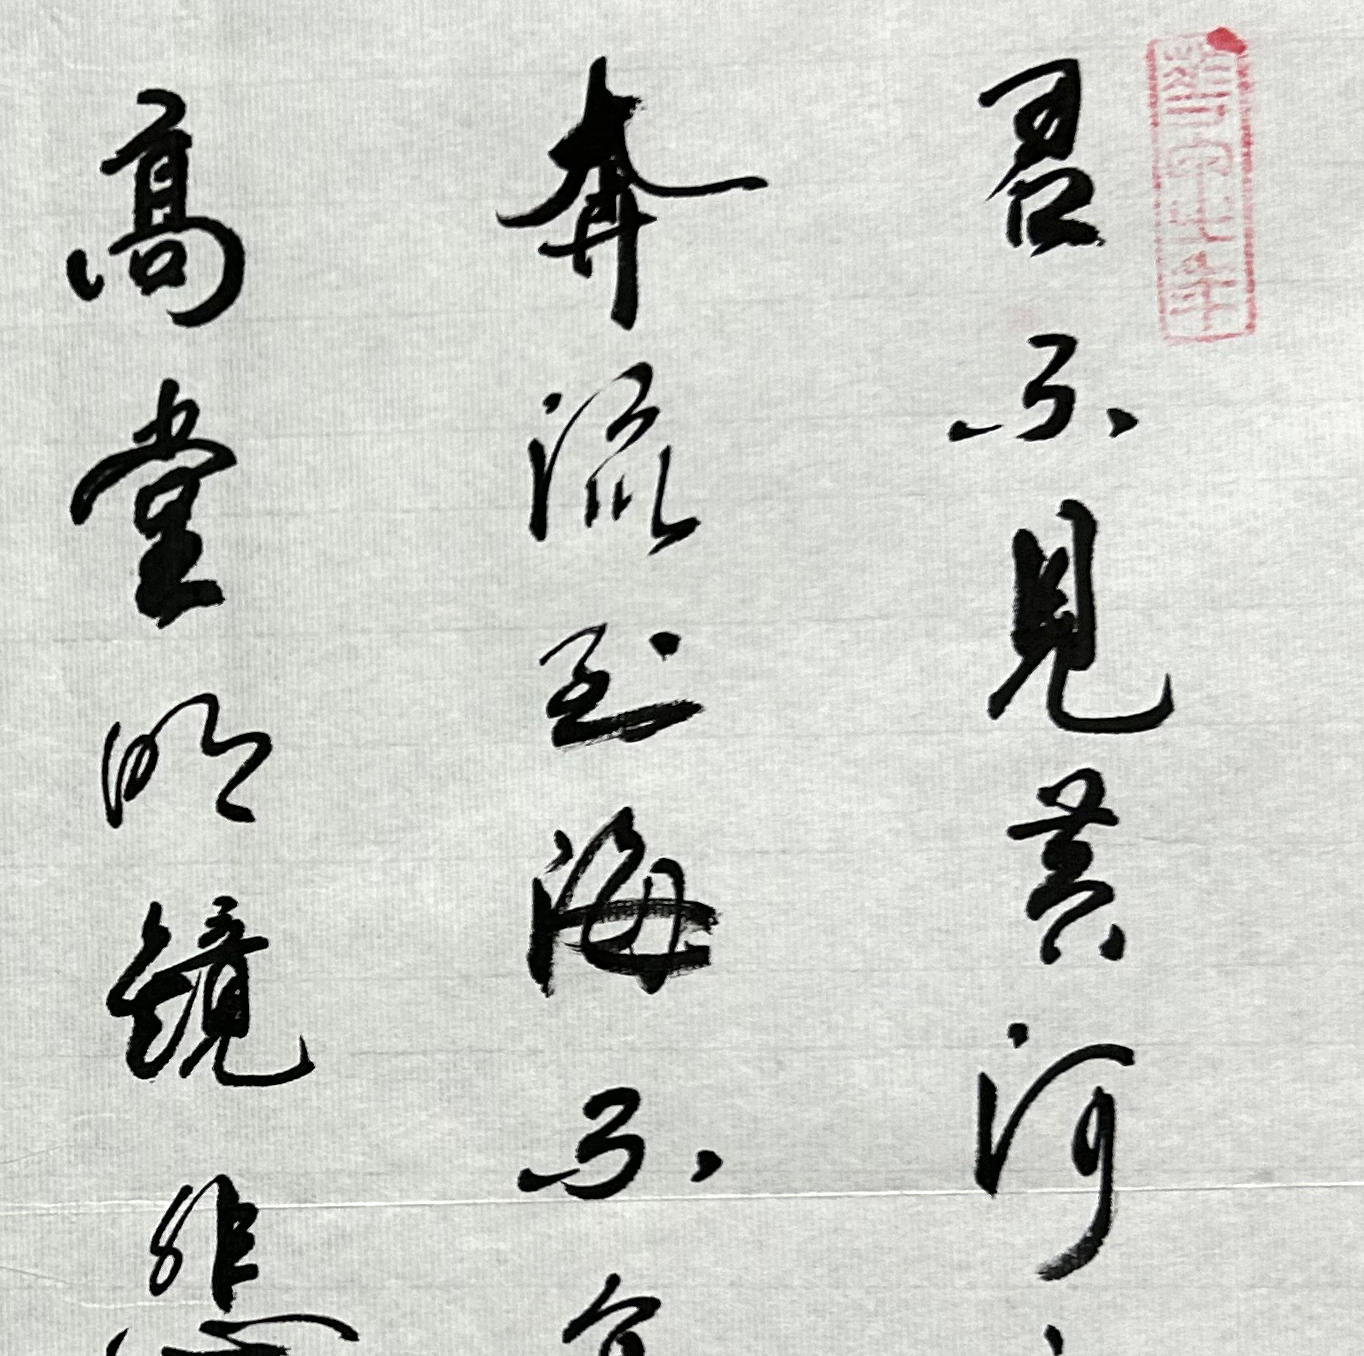 君不見黄河
奔流到海不復
高堂明鏡悲